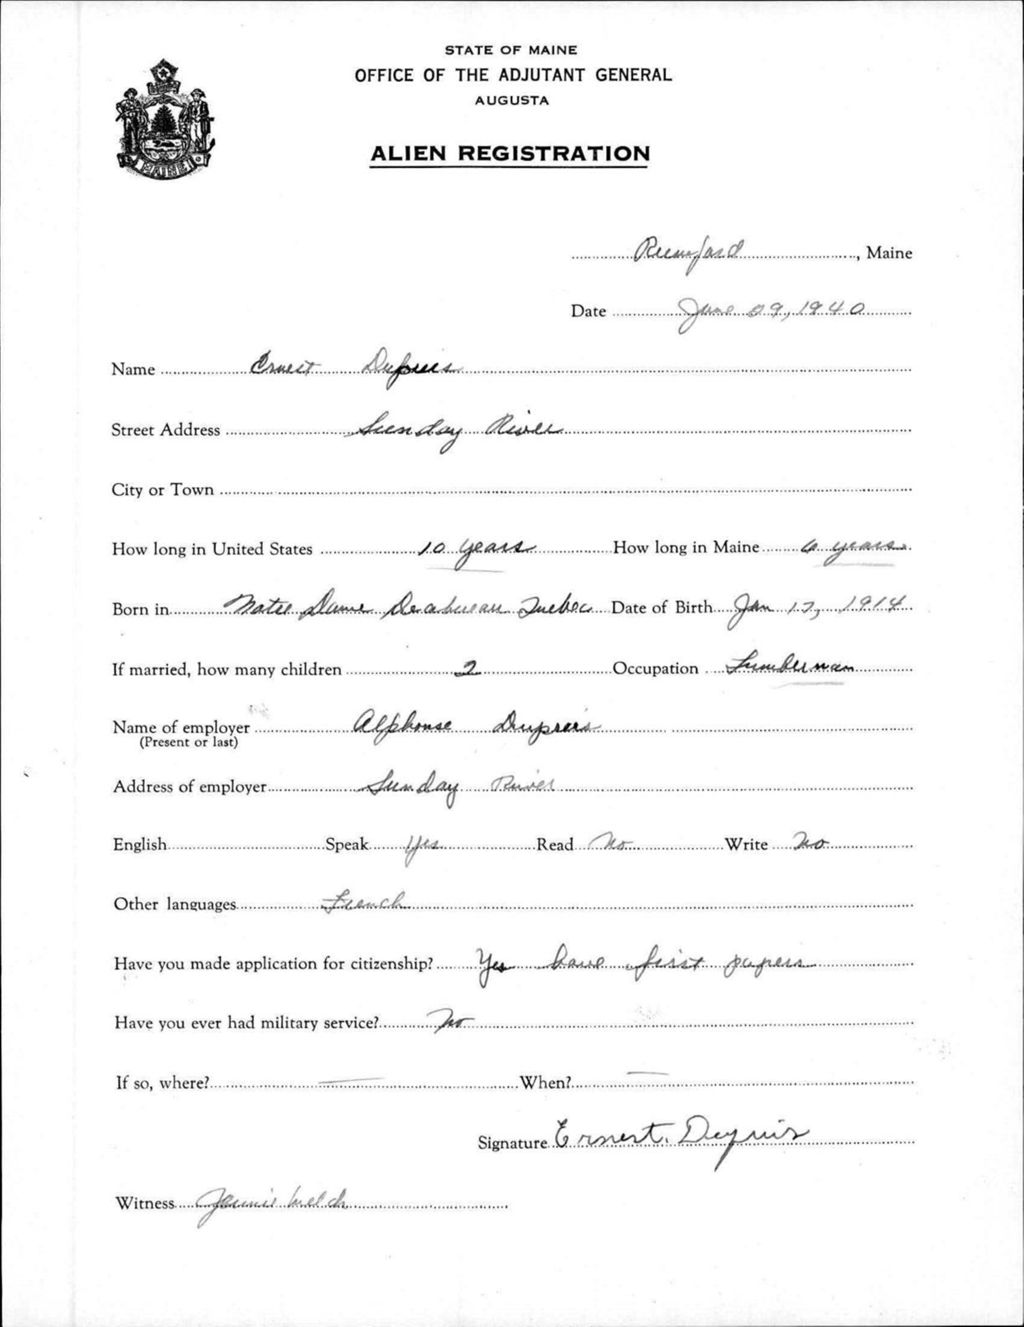 STATE OF MAINE
OFFICE OF THE ADJUTANT GENERAL
AUGUSTA
ALIEN REGISTRATION
MAINE
Rumford, Maine
Date June 09, 1940
Name Ernest Dupuis
Street Address Sunday River
City or Town
How long in United States 10 years How long in Maine 6 years
Born in Notre Dame Quebec Date of Birth Jan 17, 1914
If married, how many children 2 Occupation Lumberman
Name of employer Alphonse Dupuis
(Present or last)
Address of employer Sunday River
English Speak Yes Read No Write No
Other languages French
Have you made application for citizenship? Yes have first papers
Have you ever had military service? No
If so, where? — When? —
Signature Ernest. Dupuis
Witness Jennie Welch